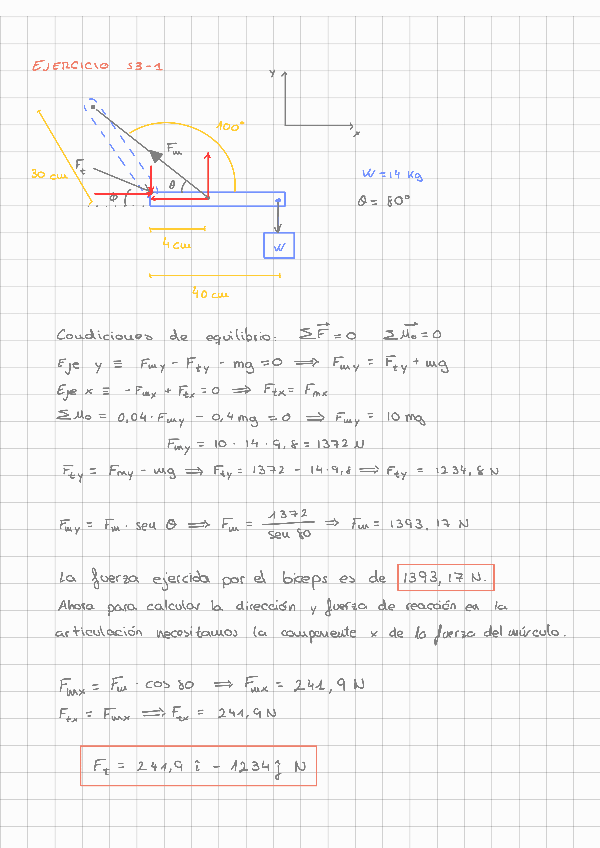 EJERCICIO S3-1
y
x
100°
Fm
Ft
30 cm
θ
ϕ
W = 14 Kg
θ = 80°
4 cm
W
40 cm
Condiciones de equilibrio: ΣF⃗ = 0 ΣM⃗o = 0
Eje y ≡ Fmy - Fty - mg = 0 ⟹ Fmy = Fty + mg
Eje x ≡ -Fmx + Ftx = 0 ⟹ Ftx = Fmx
ΣMo = 0,04·Fmy - 0,4mg = 0 ⟹ Fmy = 10 mg
Fmy = 10 · 14 · 9,8 = 1372 N
Fty = Fmy - mg ⟹ Fty = 1372 - 14·9,8 ⟹ Fty = 1234,8 N
Fmy = Fm · sen θ ⟹ Fm = 1372 / sen 80 ⟹ Fm = 1393,17 N
La fuerza ejercida por el bíceps es de 1393,17 N.
Ahora para calcular la dirección y fuerza de reacción en la
articulación necesitamos la componente x de la fuerza del músculo.
Fmx = Fm · cos 80 ⟹ Fmx = 241,9 N
Ftx = Fmx ⟹ Ftx = 241,9 N
Ft = 241,9 î - 1234 ĵ N